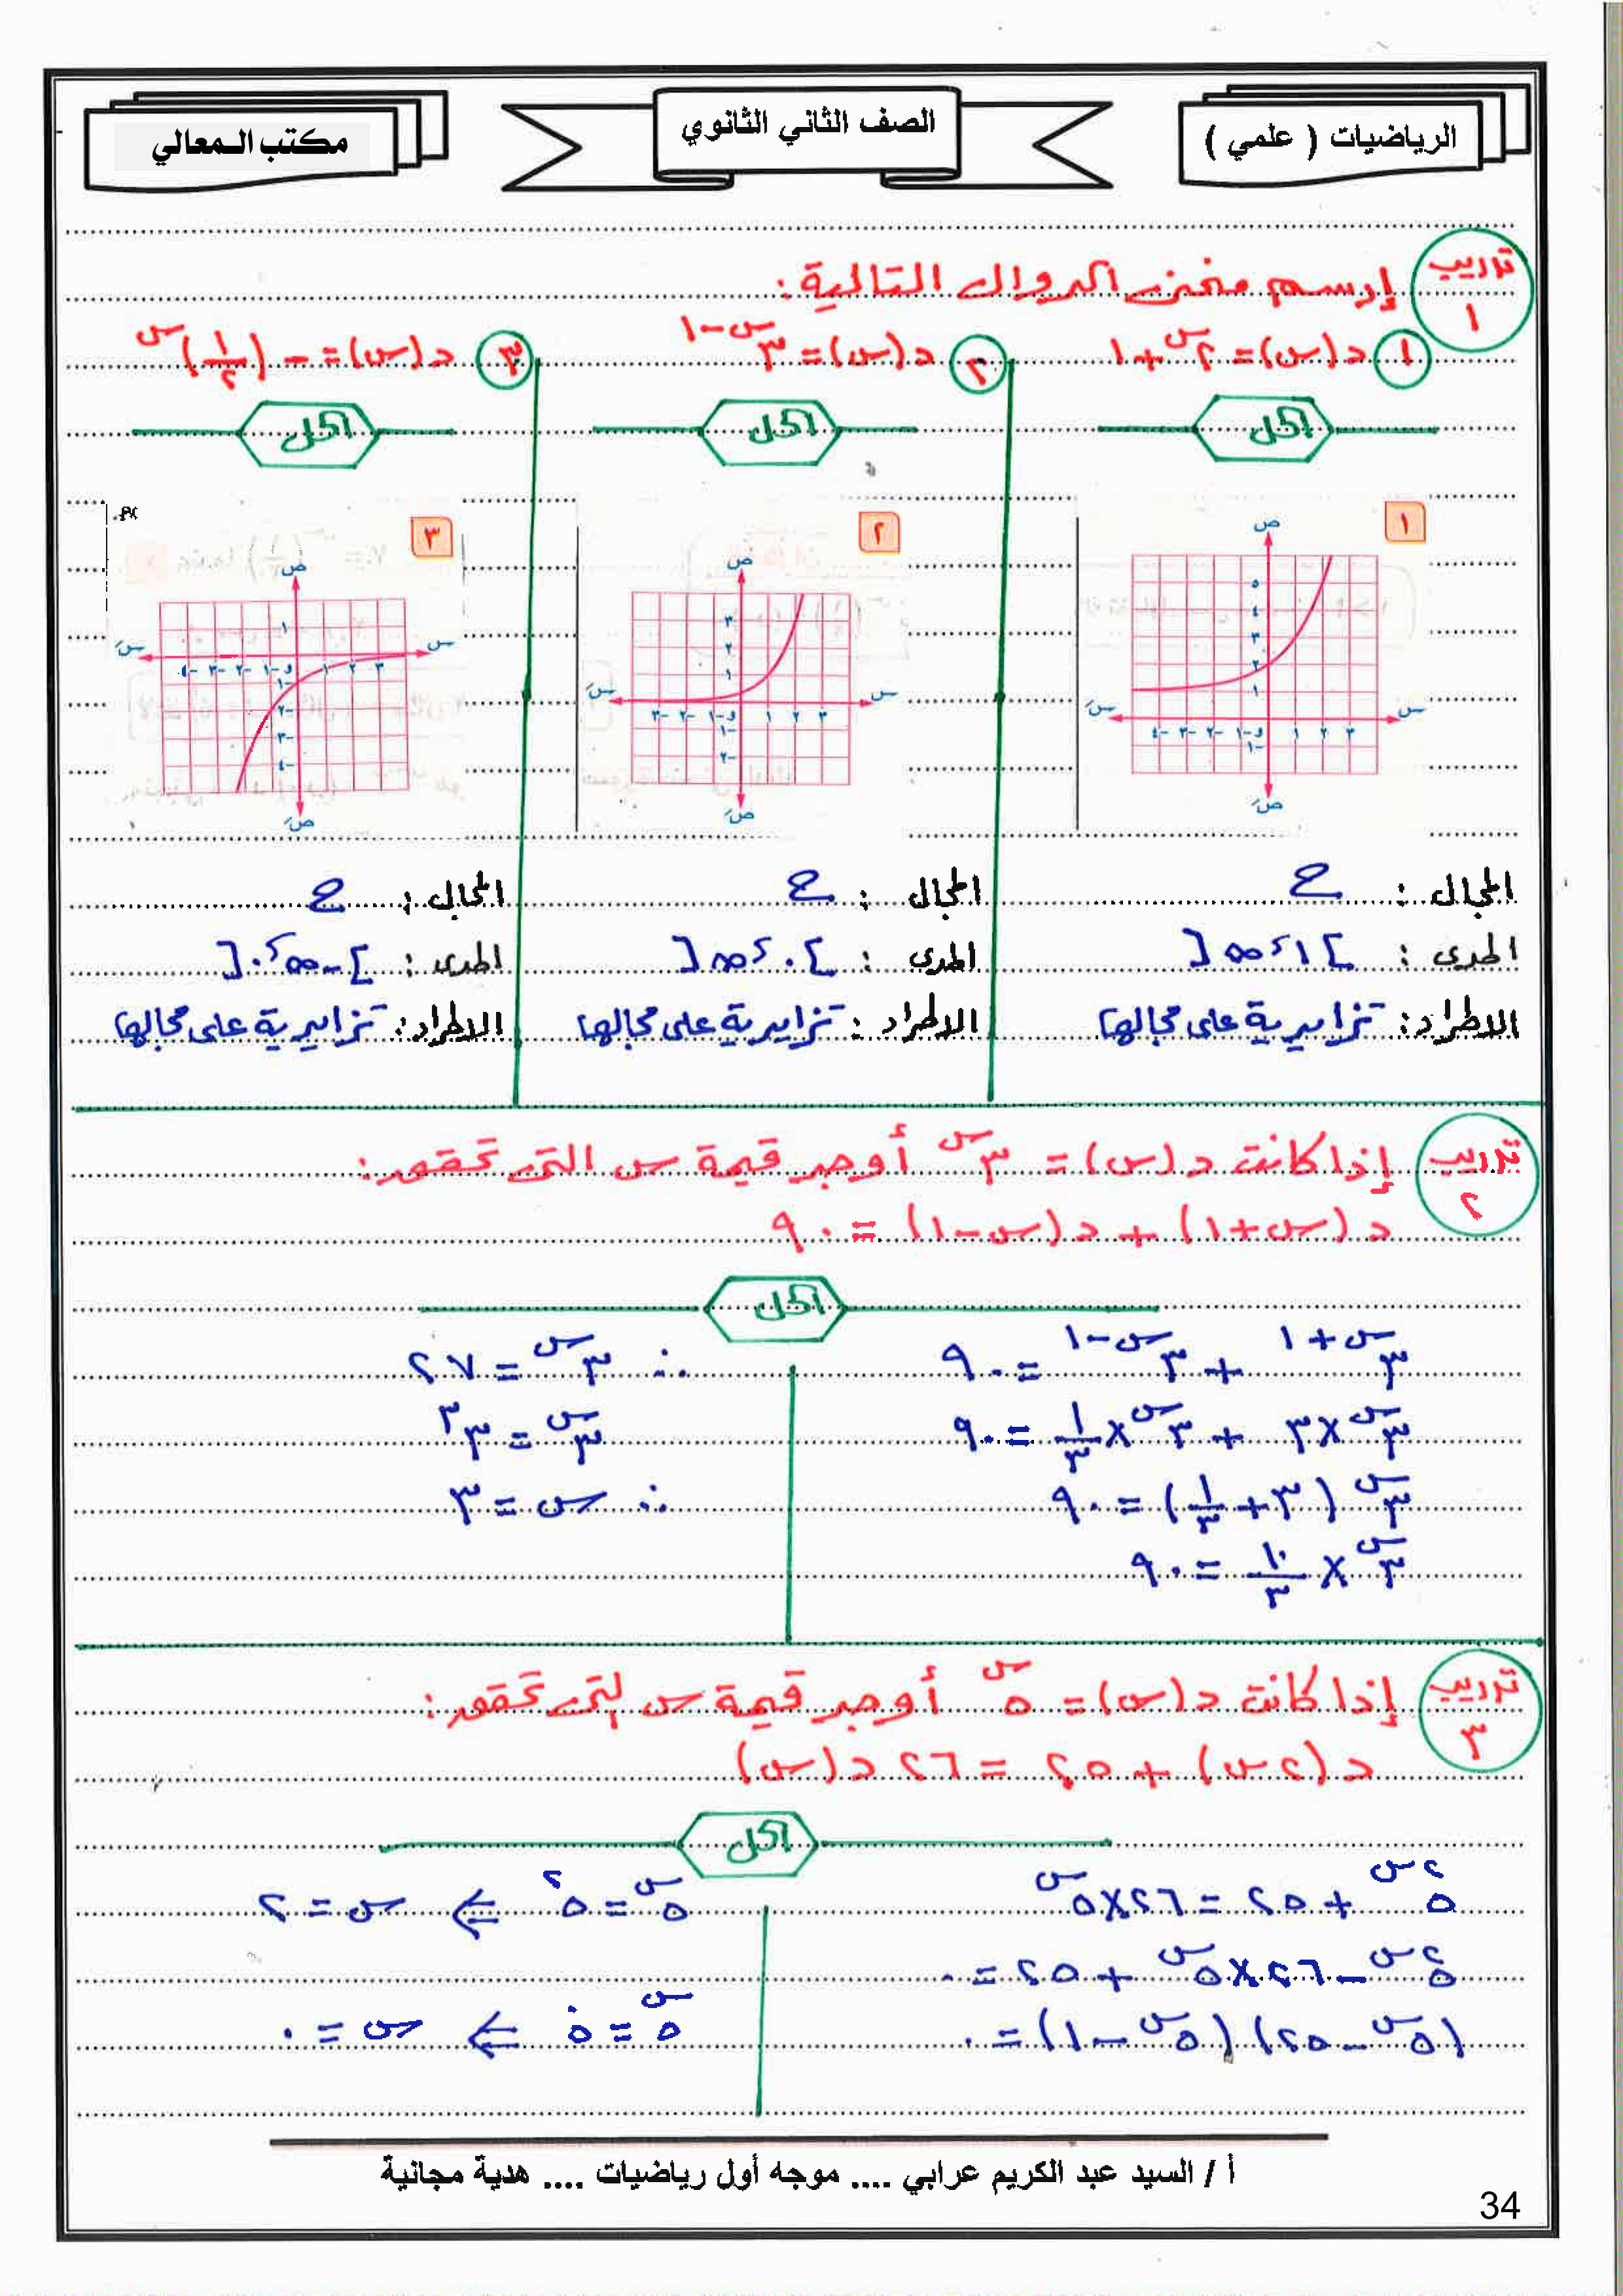 الرياضيات ( علمي )
الصف الثاني الثانوي
مكتب المعالي
تدريب ١
إرسم منحنى الدوال التالية:
١ د(س) = ٢^س + ١
٢ د(س) = ٣^(س-١)
٣ د(س) = -(١/٢)^س
الحل
الحل
الحل
١
ص
٥
٤
٣
٢
١
سَ -٤ -٣ -٢ -١ و ١ ٢ ٣ س
-١
صَ
٢
ص
٣
٢
١
سَ -٣ -٢ -١ و ١ ٢ ٣ س
-١
-٢
صَ
٣
ص
١
سَ -٤ -٣ -٢ -١ و ١ ٢ ٣ س
-١
-٢
-٣
-٤
صَ
المجال : ح
المدى : ]١، ∞[
الاطراد: تزايدية على مجالها
المجال : ح
المدى : ]٠، ∞[
الاطراد : تزايدية على مجالها
المجال : ح
المدى : ]-∞، ٠[
الاطراد: تزايدية على مجالها
تدريب ٢
إذا كانت د(س) = ٣^س أوجد قيمة س التى تحقق:
د(س+١) + د(س-١) = ٩٠
الحل
٣^(س+١) + ٣^(س-١) = ٩٠
٣^س × ٣ + ٣^س × ١/٣ = ٩٠
٣^س (٣ + ١/٣) = ٩٠
٣^س × ١٠/٣ = ٩٠
∴ ٣^س = ٢٧
٣^س = ٣^٣
∴ س = ٣
تدريب ٣
إذا كانت د(س) = ٥^س أوجد قيمة س التى تحقق:
د(٢س) + ٢٥ = ٢٦ د(س)
الحل
٥^٢س + ٢٥ = ٢٦ × ٥^س
٥^٢س - ٢٦ × ٥^س + ٢٥ = ٠
(٥^س - ٢٥) (٥^س - ١) = ٠
٥^س = ٥^٢ ⇐ س = ٢
٥^س = ٥^٠ ⇐ س = ٠
أ / السيد عبد الكريم عرابي .... موجه أول رياضيات .... هدية مجانية
34